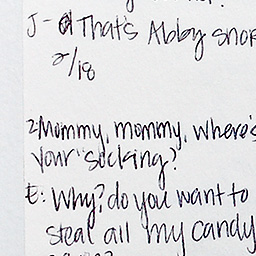 J- That's Abby snor
2/18
Z: Mommy, mommy, where's
your socking?
E: Why? do you want to
steal all my candy